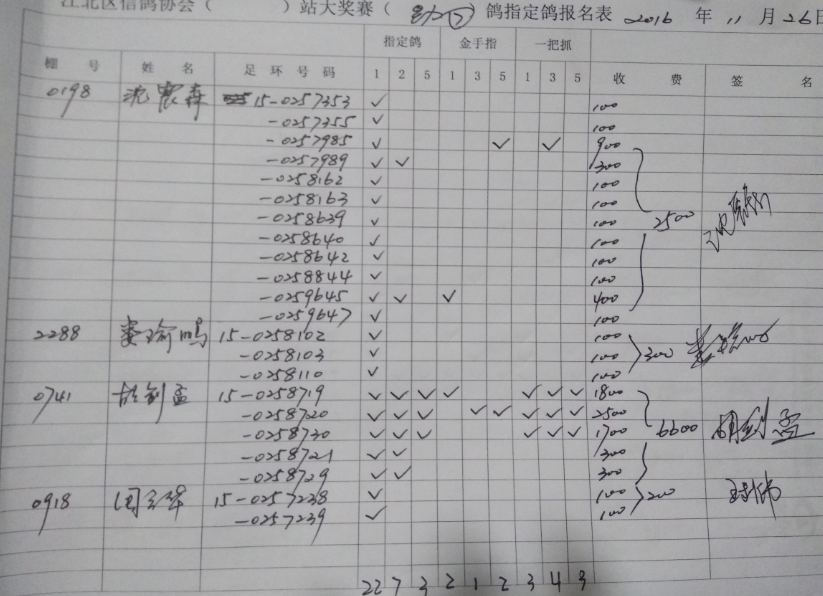 江北区信鸽协会（　　）站大奖赛（　　）鸽指定鸽报名表 2016 年 11 月 26 日
指定鸽 金手指 一把抓
棚 号 姓 名 足 环 号 码 1 2 5 1 3 5 1 3 5 收 费 签 名
0198 沈 森 15-0257353 ✓ 100
-0257355 ✓ 100
-0257985 ✓ ✓ ✓ 900
-0257989 ✓ ✓ 300
-0258162 ✓ 100
-0258163 ✓ 100
-0258639 ✓ 100 2500
-0258640 ✓ 100
-0258642 ✓ 100
-0258844 ✓ 100
-0259645 ✓ ✓ ✓ 400
-0259647 ✓ 100
2288 娄瑜鸣 15-0258102 ✓ 100
-0258103 ✓ 100 300
-0258110 ✓ 100
0741 胡剑孟 15-0258719 ✓ ✓ ✓ ✓ ✓ ✓ ✓ 1800
-0258720 ✓ ✓ ✓ ✓ ✓ ✓ ✓ ✓ 2500
-0258730 ✓ ✓ ✓ ✓ ✓ ✓ 1700 6600 胡剑孟
-0258721 ✓ ✓ 300
-0258729 ✓ ✓ 300
0918 15-0257238 ✓ 100 200
-0257239 ✓ 100
22 7 3 2 1 2 3 4 3